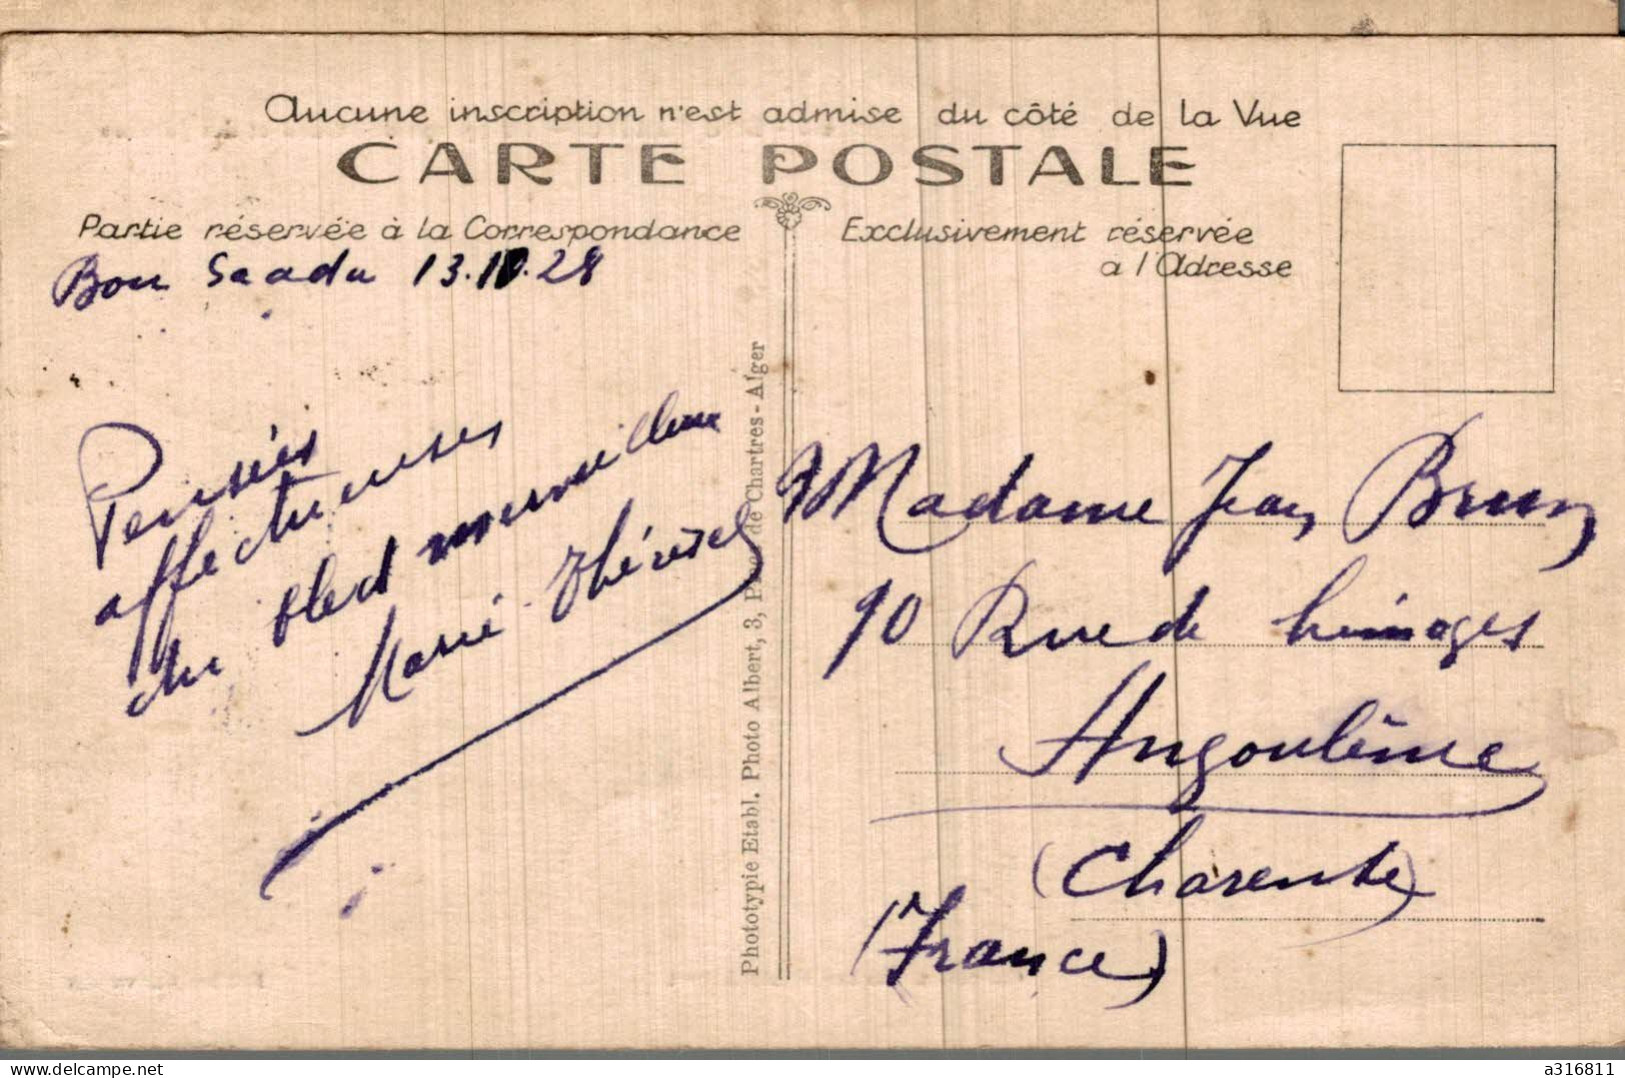 Aucune inscription n'est admise du côté de la Vue
CARTE POSTALE
Partie réservée à la Correspondance
Exclusivement réservée
a l'Adresse
Bou Saada 13.10.28
Pensées
affectueuses
du bled merveilleux
Marie Thérèse
Phototypie Etabl. Photo Albert, 3, Rue de Chartres - Alger
Madame Jean Brun
90 Rue de Limoges
Angoulême
(Charente)
(France)
delcampe.net
a316811